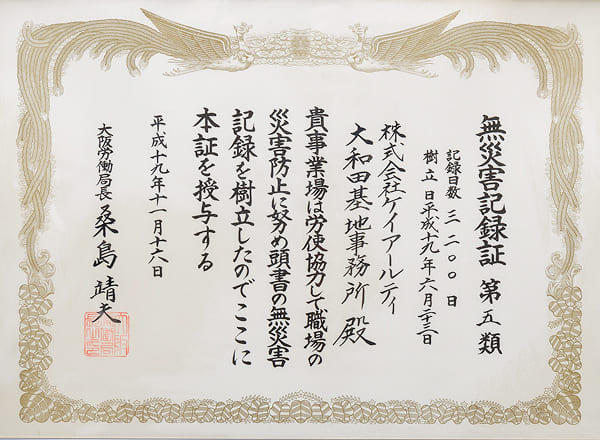 無災害記録証 第五類
記録日数 三二〇〇日
樹立日平成十九年六月二十三日
株式会社ケイアールティ
大和田基地事務所殿
貴事業場は労使協力して職場の
災害防止に努め頭書の無災害
記録を樹立したのでここに
本証を授与する
平成十九年十一月十六日
大阪労働局長 桑島靖夫